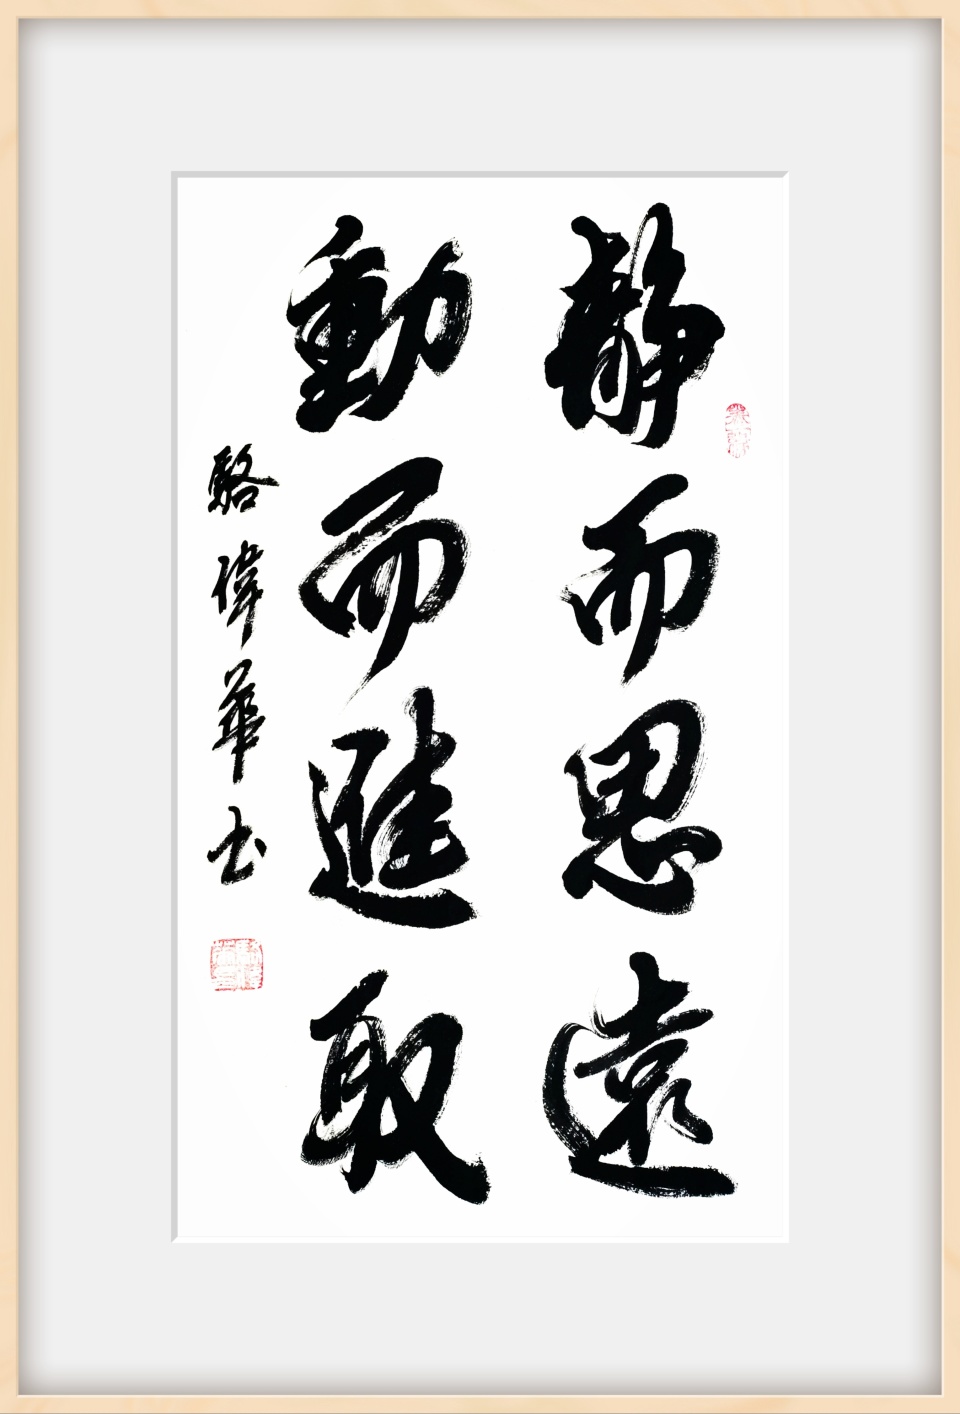 静而思遠
動而進取
駱偉華书